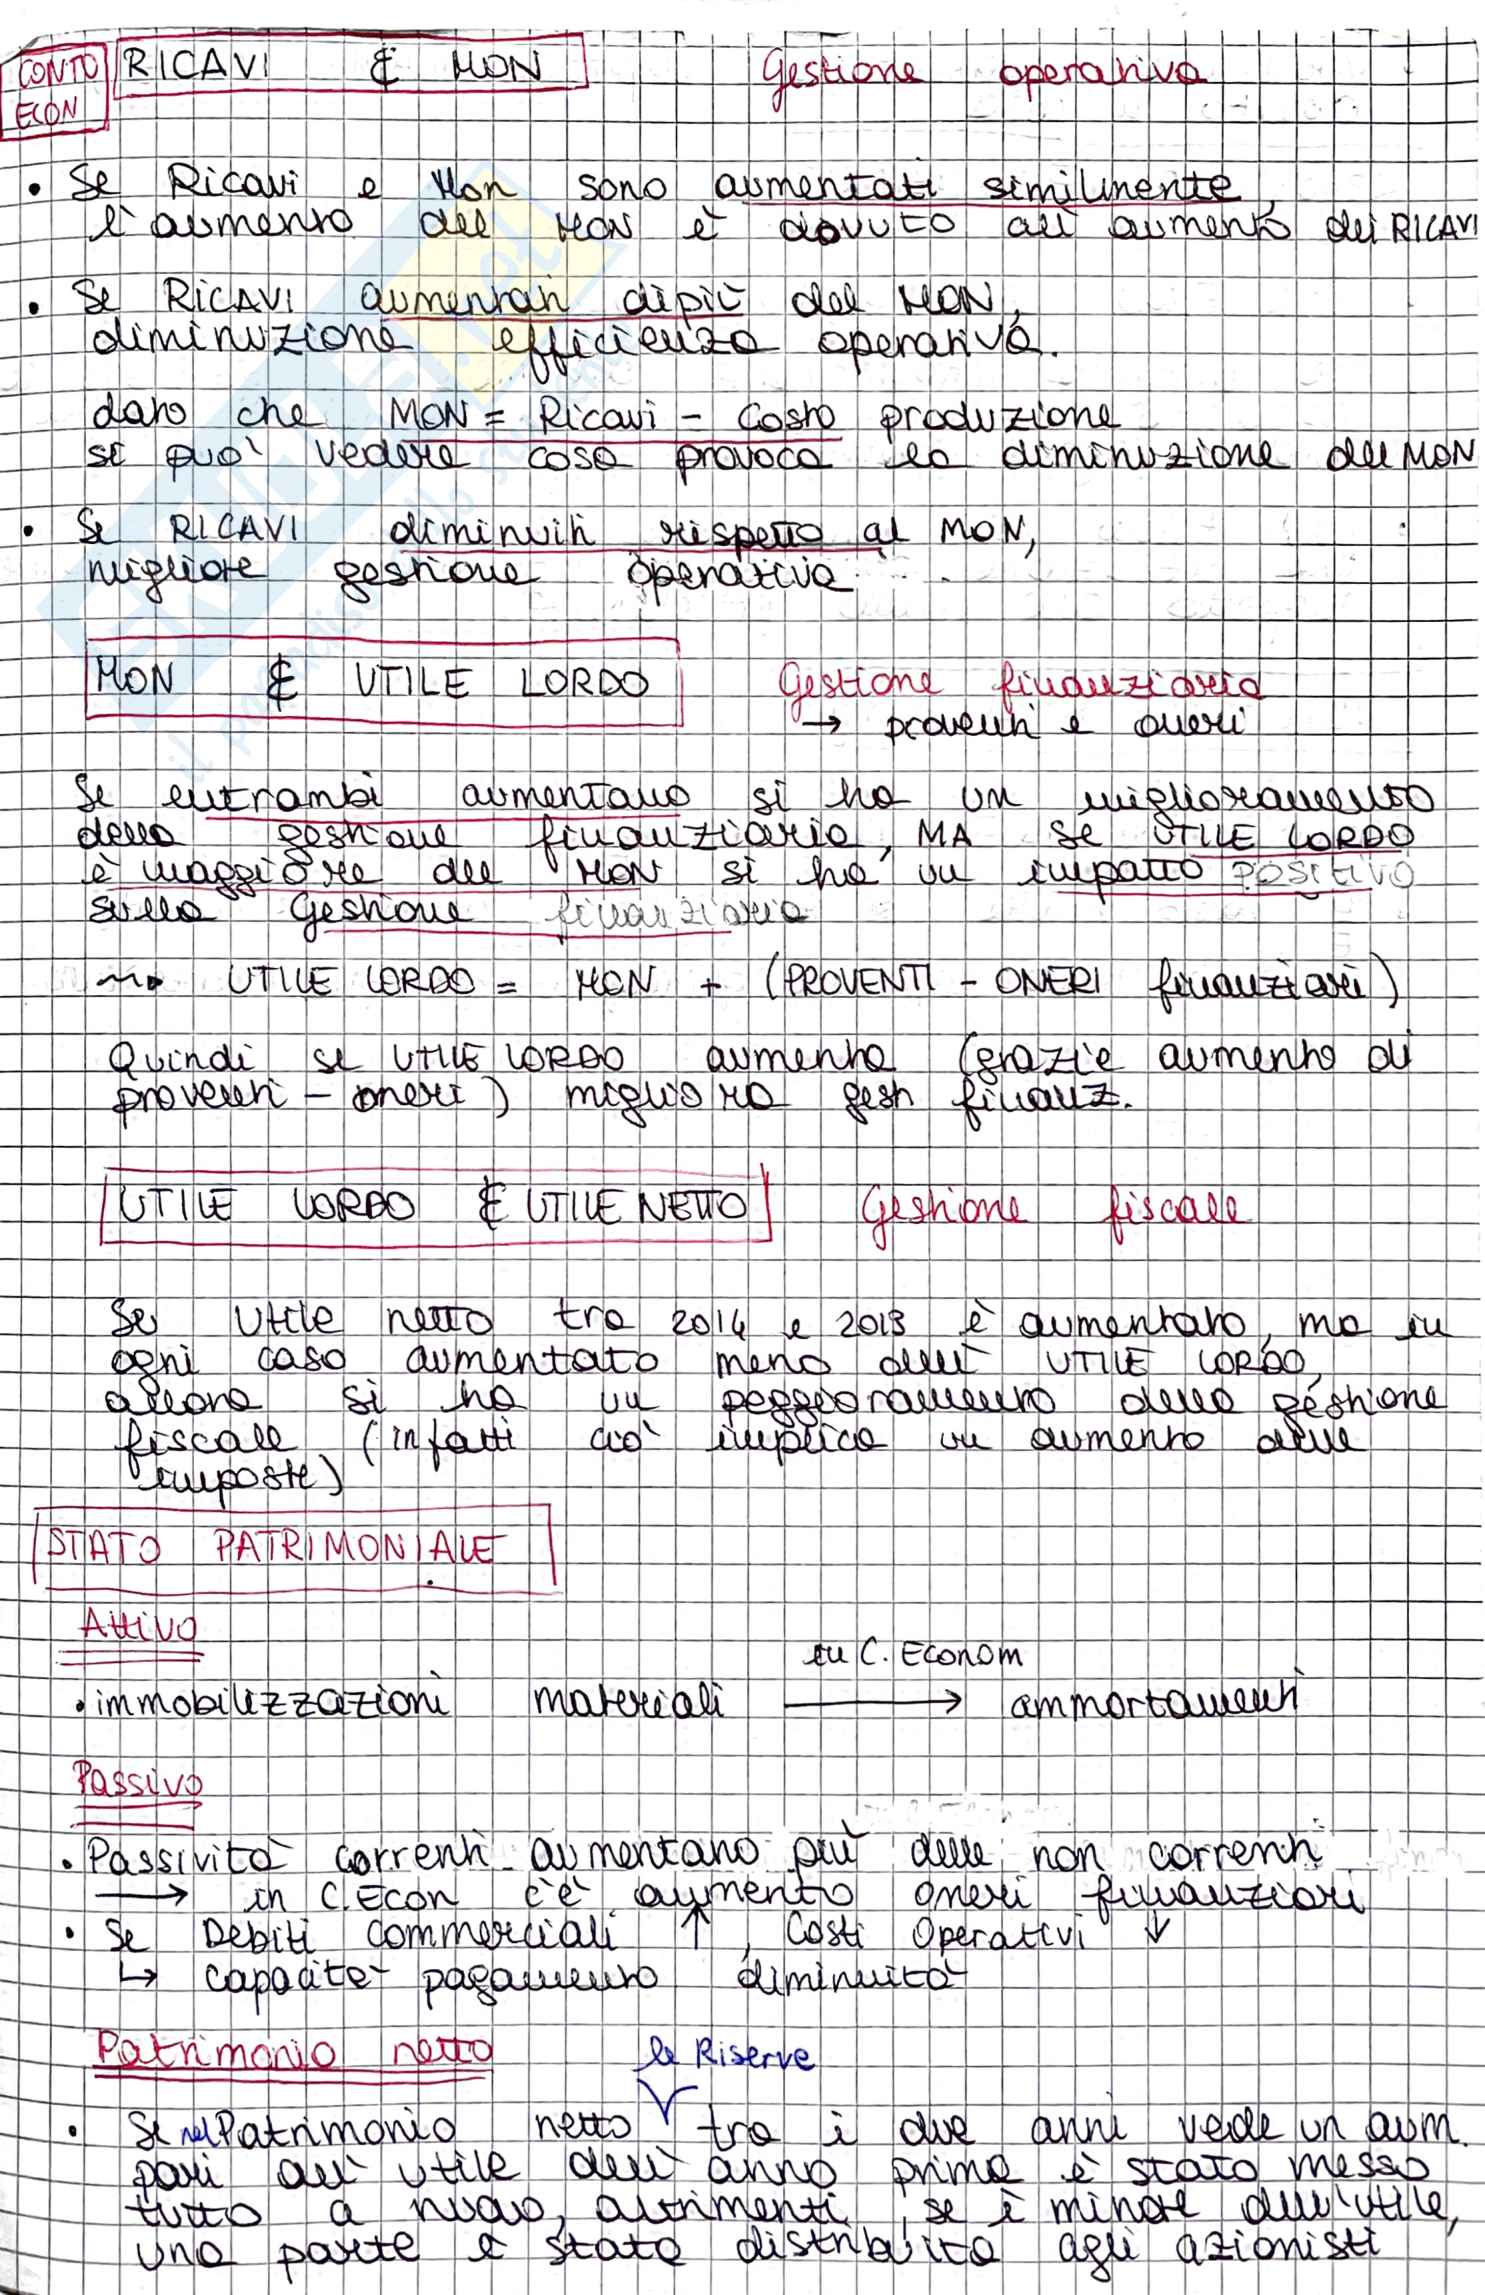 CONTO
ECON
RICAVI & MON
Gestione operativa
• Se Ricavi e Mon sono aumentati similmente,
l'aumento del MON è dovuto all'aumento dei RICAVI
• Se RICAVI aumentati di più del MON,
diminuzione efficienza operativa.
dato che MON = Ricavi - Costo produzione
si può vedere cosa provoca la diminuzione del MON
• Se RICAVI diminuiti rispetto al MON,
migliore gestione operativa
MON & UTILE LORDO
Gestione finanziaria
→ proventi e oneri
Se entrambi aumentano si ha un miglioramento
della gestione finanziaria, MA se UTILE LORDO
è maggiore del MON si ha un impatto positivo
sulla Gestione finanziaria
UTILE LORDO = MON + (PROVENTI - ONERI finanziari)
Quindi se UTILE LORDO aumenta (grazie aumento di
proventi - oneri) migliora gest finanz.
UTILE LORDO & UTILE NETTO
Gestione fiscale
Se Utile netto tra 2014 e 2013 è aumentato, ma in
ogni caso aumentato meno dell' UTILE LORDO,
allora si ha un peggioramento della gestione
fiscale (infatti ciò implica un aumento delle
imposte)
STATO PATRIMONIALE
Attivo
in C. Econom
• immobilizzazioni materiali → ammortamenti
Passivo
• Passività correnti aumentano più delle non correnti
→ in C. Econ c'è aumento oneri finanziari
• Se Debiti commerciali ↑, Costi Operativi ↓
↳ capacità pagamento diminuita
Patrimonio netto
le Riserve
• Se nel Patrimonio netto tra i due anni vede un aum.
pari all'utile dell'anno prima è stato messo
tutto a nuovo, altrimenti, se è minore dell'utile,
una parte è stata distribuita agli azionisti